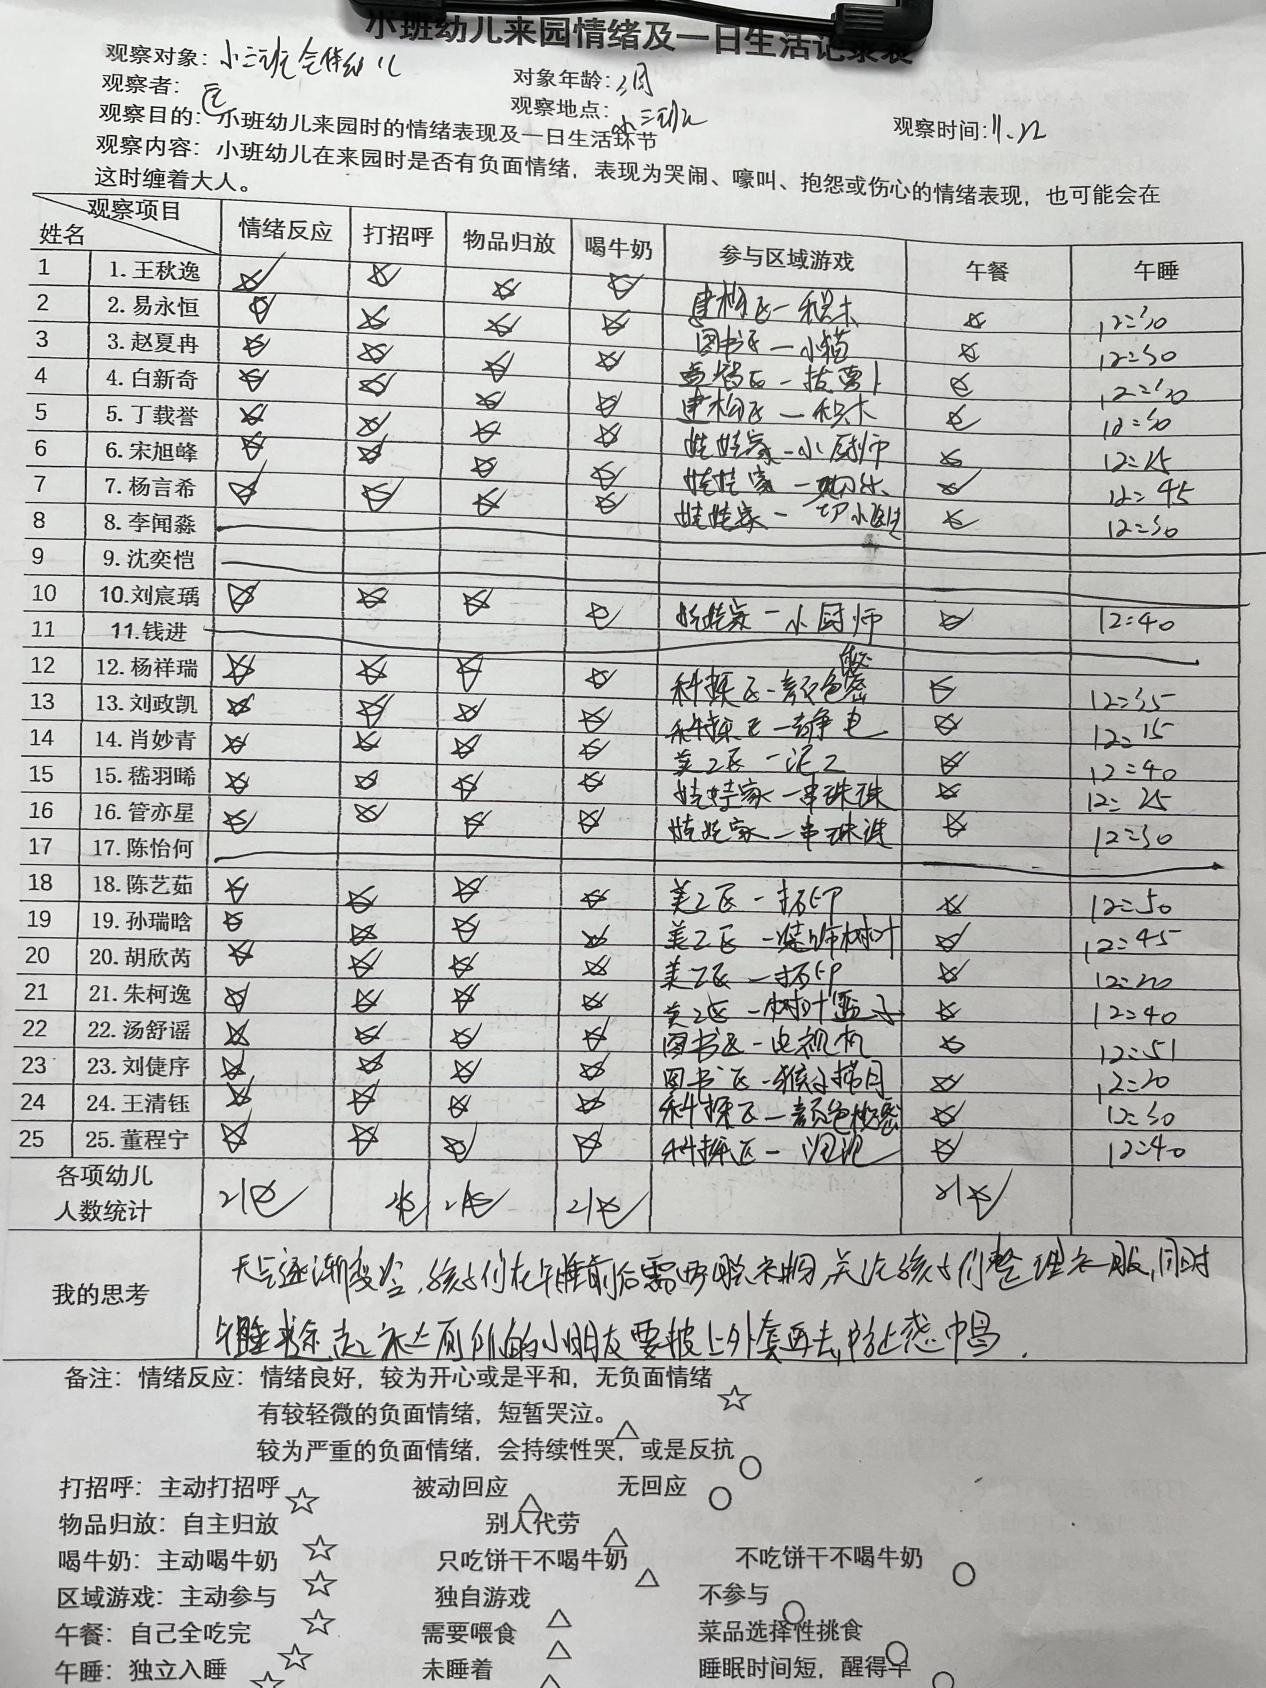 小班幼儿来园情绪及一日生活记录表
观察对象：小三班全体幼儿 对象年龄：3周
观察者： 观察地点：小三班 观察时间：11.22
观察目的：小班幼儿来园时的情绪表现及一日生活环节
观察内容：小班幼儿在来园时是否有负面情绪，表现为哭闹、嚎叫、抱怨或伤心的情绪表现，也可能会在
这时缠着大人。
观察项目 姓名 情绪反应 打招呼 物品归放 喝牛奶 参与区域游戏 午餐 午睡
1 1.王秋逸 ☆ ☆ ☆ ☆ 建构区－积木 ☆ 12:30
2 2.易永恒 ☆ ☆ ☆ ☆ 图书区－小猫 ☆ 12:30
3 3.赵夏冉 ☆ ☆ ☆ ☆ 益智区－拔萝卜 ☆ 12:30
4 4.白新奇 ☆ ☆ ☆ ☆ 建构区－积木 ☆ 12:30
5 5.丁载誉 ☆ ☆ ☆ ☆ 娃娃家－小厨师 ☆ 12:25
6 6.宋旭峰 ☆ ☆ ☆ ☆ 娃娃家－ ☆ 12:45
7 7.杨言希 ☆ ☆ ☆ ☆ 娃娃家－ ☆ 12:30
8 8.李闻淼
9 9.沈奕恺
10 10.刘宸瑀 ☆ ☆ ☆ ☆ 娃娃家－小厨师 ☆ 12:40
11 11.钱进
12 12.杨祥瑞 ☆ ☆ ☆ ☆ 科探区－颜色秘密 ☆ 12:35
13 13.刘政凯 ☆ ☆ ☆ ☆ 科探区－静电 ☆ 12:15
14 14.肖妙青 ☆ ☆ ☆ ☆ 美工区－泥工 ☆ 12:40
15 15.嵇羽晞 ☆ ☆ ☆ ☆ 娃娃家－串珠珠 ☆ 12:25
16 16.管亦星 ☆ ☆ ☆ ☆ 娃娃家－串珠珠 ☆ 12:30
17 17.陈怡何
18 18.陈艺茹 ☆ ☆ ☆ ☆ 美工区－拓印 ☆ 12:50
19 19.孙瑞晗 ☆ ☆ ☆ ☆ 美工区－装饰树叶 ☆ 12:45
20 20.胡欣芮 ☆ ☆ ☆ ☆ 美工区－拓印 ☆ 12:20
21 21.朱柯逸 ☆ ☆ ☆ ☆ 美工区－树叶 ☆ 12:40
22 22.汤舒谣 ☆ ☆ ☆ ☆ 图书区－电视机 ☆ 12:51
23 23.刘倢序 ☆ ☆ ☆ ☆ 图书区－猴子捞月 ☆ 12:20
24 24.王清钰 ☆ ☆ ☆ ☆ 科探区－颜色秘密 ☆ 12:30
25 25.董程宁 ☆ ☆ ☆ ☆ 科探区－ ☆ 12:40
各项幼儿
人数统计 21☆ 21☆ 21☆ 21☆ 21☆
我的思考 天气逐渐变冷，孩子们在午睡前后需要脱衣物，关注孩子们整理衣服，同时
午睡途起来上厕所的小朋友要披上外套再去，防止感冒。
备注：情绪反应：情绪良好，较为开心或是平和，无负面情绪 ☆
有较轻微的负面情绪，短暂哭泣。 △
较为严重的负面情绪，会持续性哭，或是反抗 ○
打招呼：主动打招呼 ☆ 被动回应 △ 无回应 ○
物品归放：自主归放 ☆ 别人代劳 △
喝牛奶：主动喝牛奶 ☆ 只吃饼干不喝牛奶 △ 不吃饼干不喝牛奶 ○
区域游戏：主动参与 ☆ 独自游戏 △ 不参与 ○
午餐：自己全吃完 ☆ 需要喂食 △ 菜品选择性挑食 ○
午睡：独立入睡 ☆ 未睡着 △ 睡眠时间短，醒得早 ○